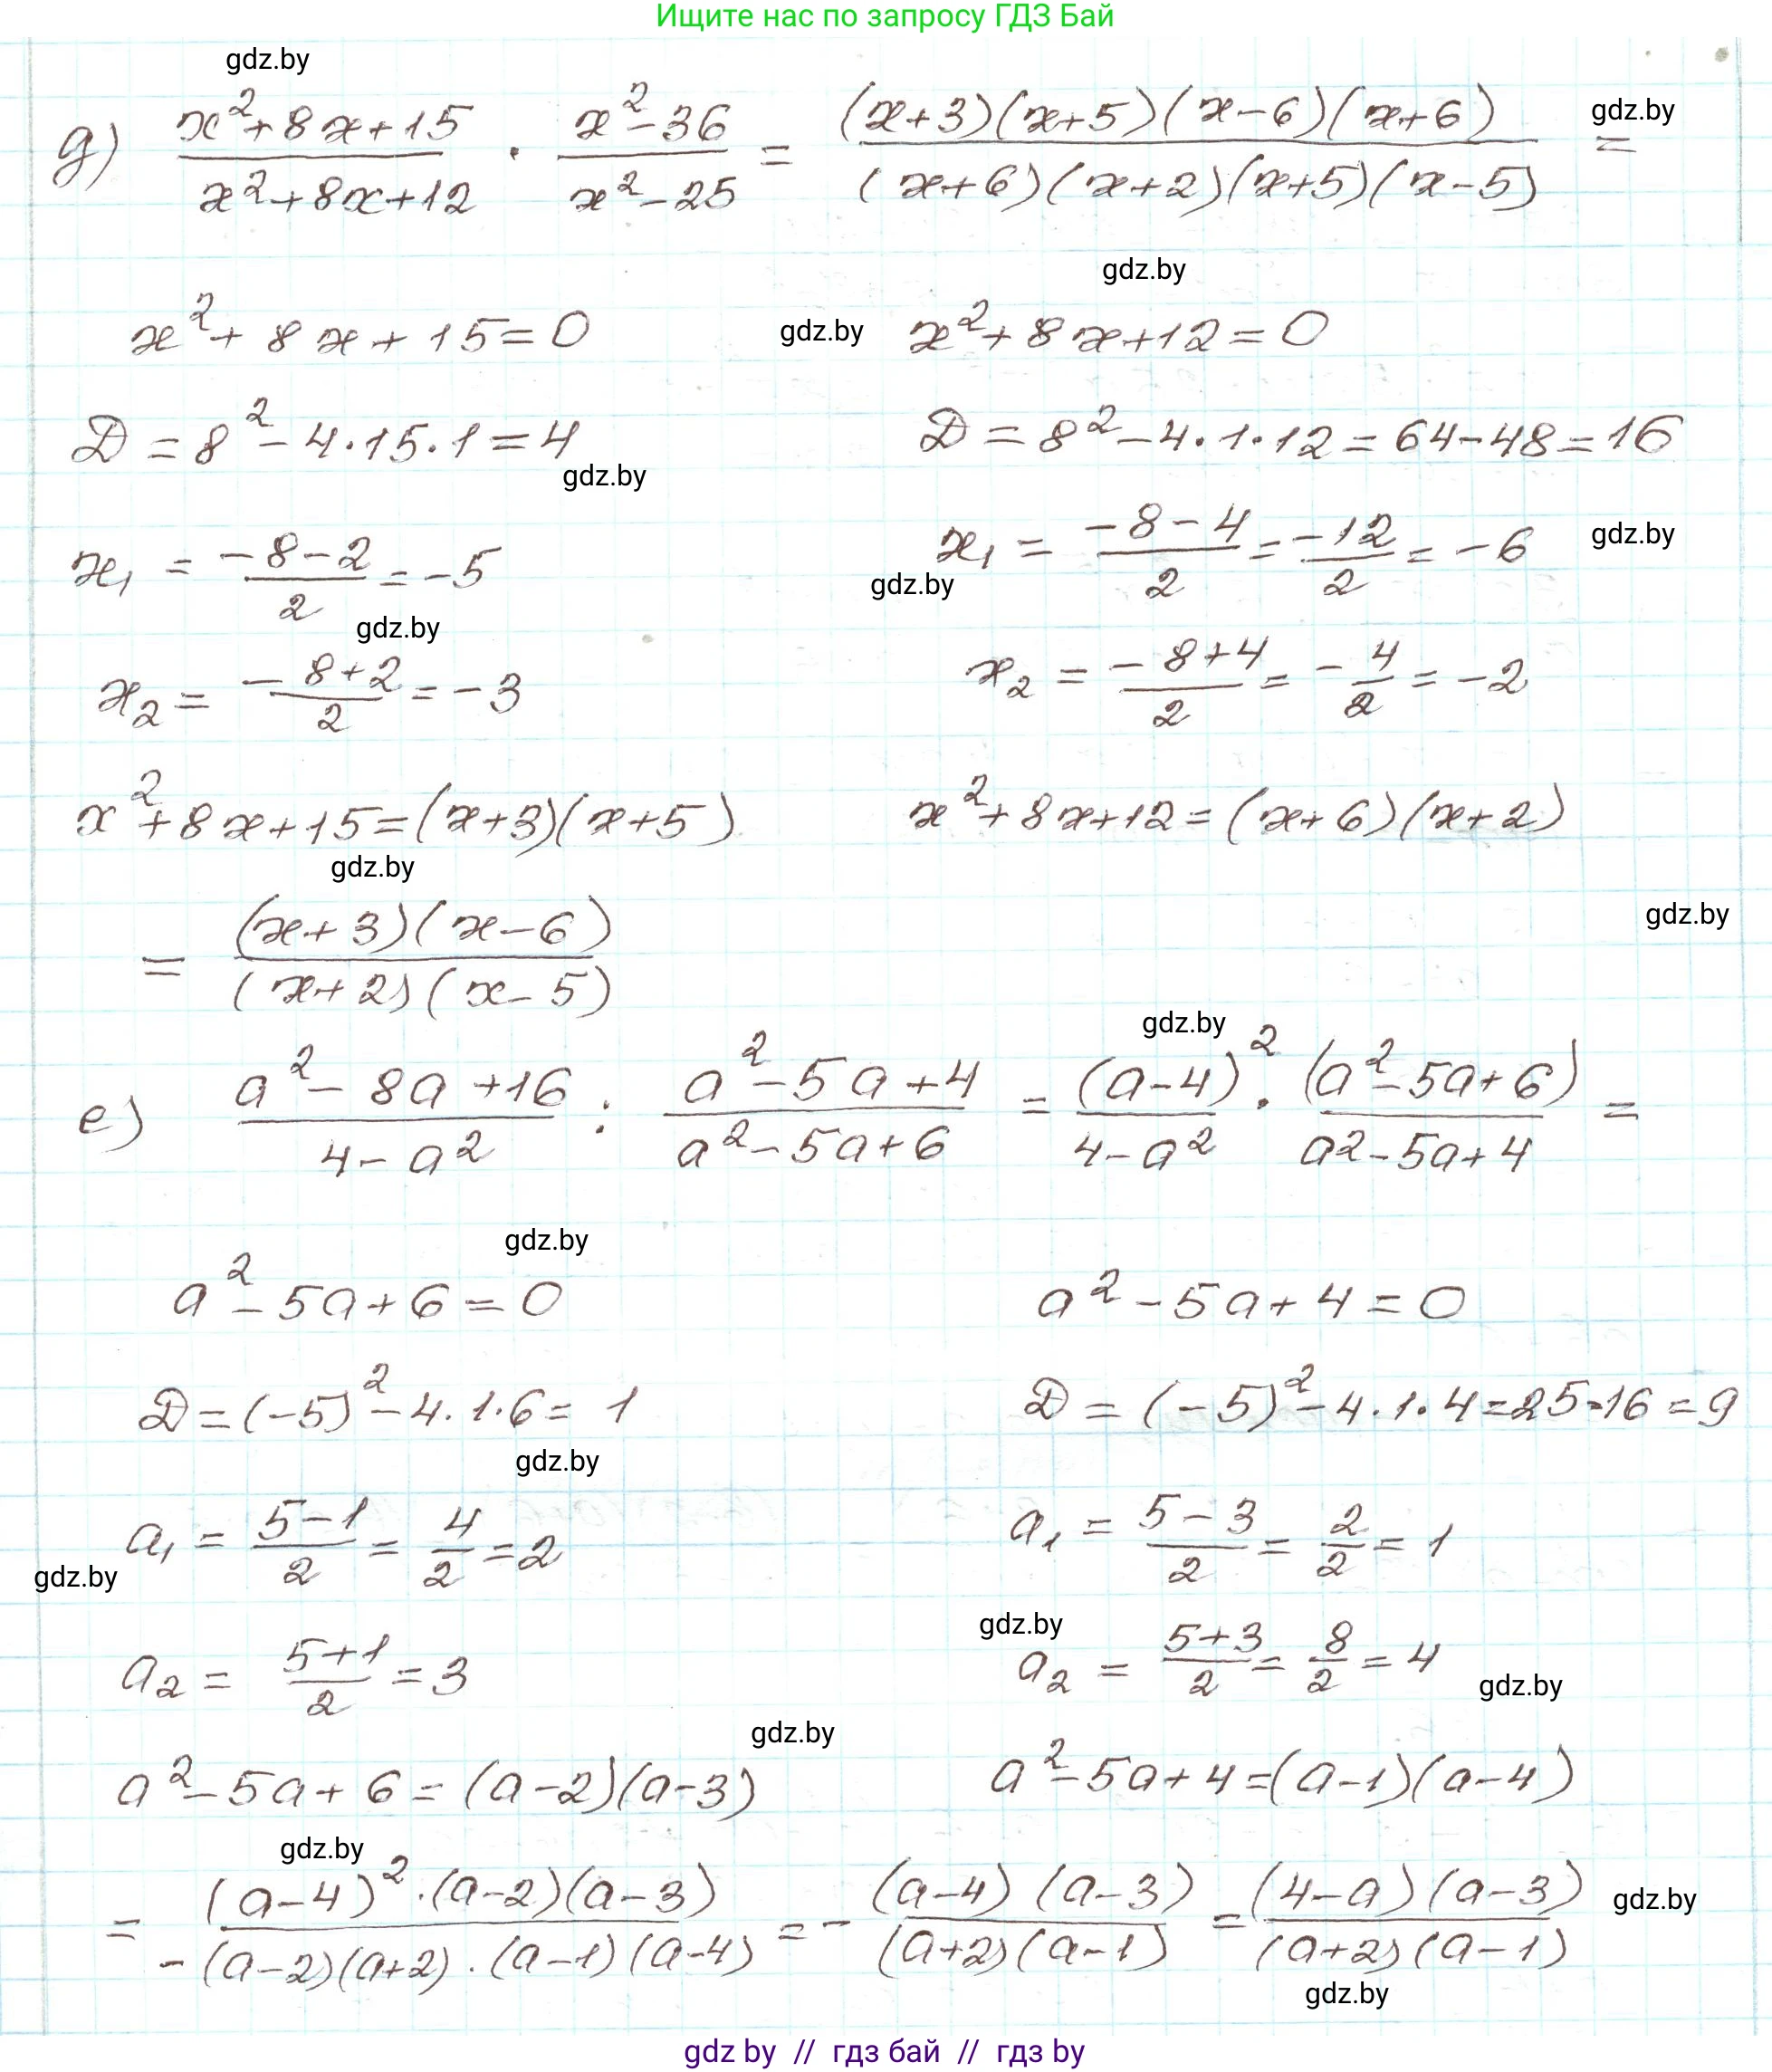 Ищите нас по запросу ГДЗ Бай
gdz.by
д) (x²+8x+15)/(x²+8x+12) · (x²-36)/(x²-25) = ((x+3)(x+5)(x-6)(x+6))/((x+6)(x+2)(x+5)(x-5)) = gdz.by
gdz.by
x²+8x+15=0 gdz.by x²+8x+12=0
D=8²-4·15·1=4 D=8²-4·1·12=64-48=16
gdz.by
x₁ = (-8-2)/2 = -5 x₁ = (-8-4)/2 = -12/2 = -6 gdz.by
gdz.by
gdz.by
x₂ = (-8+2)/2 = -3 x₂ = (-8+4)/2 = -4/2 = -2
x²+8x+15=(x+3)(x+5) x²+8x+12=(x+6)(x+2)
gdz.by
= ((x+3)(x-6))/((x+2)(x-5)) gdz.by
gdz.by
е) (a²-8a+16)/(4-a²) : (a²-5a+4)/(a²-5a+6) = (a-4)²/(4-a²) · (a²-5a+6)/(a²-5a+4) =
gdz.by
a²-5a+6=0 a²-5a+4=0
D=(-5)²-4·1·6=1 D=(-5)²-4·1·4=25-16=9
gdz.by
a₁ = (5-1)/2 = 4/2 = 2 a₁ = (5-3)/2 = 2/2 = 1
gdz.by
gdz.by
a₂ = (5+1)/2 = 3 a₂ = (5+3)/2 = 8/2 = 4 gdz.by
gdz.by
a²-5a+6=(a-2)(a-3) a²-5a+4=(a-1)(a-4)
gdz.by
= ((a-4)²·(a-2)(a-3))/(-(a-2)(a+2)·(a-1)(a-4)) = - ((a-4)(a-3))/((a+2)(a-1)) = ((4-a)(a-3))/((a+2)(a-1)) gdz.by
gdz.by
gdz by // гдз бай // гдз by